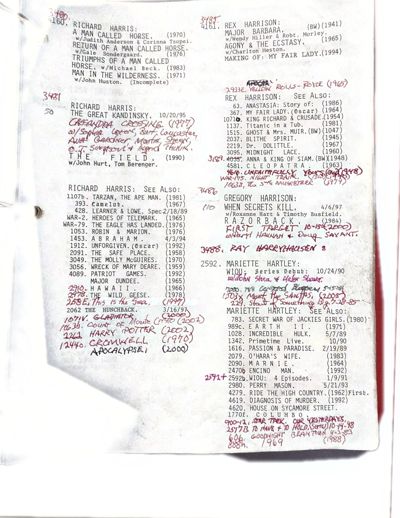 3480.
4160. RICHARD HARRIS:
A MAN CALLED HORSE. (1970)
w/Judith Anderson & Corinna Tsopei.
RETURN OF A MAN CALLED HORSE.
w/Gale Sondergaard. (1976)
TRIUMPHS OF A MAN CALLED
HORSE. w/Michael Beck. (1983)
MAN IN THE WILDERNESS. (1971)
w/John Huston. (Incomplete)
3481
RICHARD HARRIS:
THE GREAT KANDINSKY. 10/20/96
CASSANDRA CROSSING (1977)
w/Sophia Loren, Burt Lancaster,
Ava Gardner, Martin Sheen,
O.J. Simpson &
THE FIELD. (1990)
w/John Hurt, Tom Berenger.
RICHARD HARRIS: SEE ALSO:
1107b. TARZAN, THE APE MAN. (1981)
393. Camelot. (1967)
428. LEARNER & LOWE. Spec/2/8/89
WAR-2. HEROES OF TELEMARK. (1965)
WAR-79. THE EAGLE HAS LANDED. (1976)
1053. ROBIN & MARION. (1976)
1453. ABRAHAM. 4/3/94
1912. UNFORGIVEN, (Oscar) (1992)
2091. THE SAFE PLACE. (1958)
3049. THE MOLLY McGUIRES. (1970)
3056. WRECK OF MARY DEARE. (1959)
4089. PATRIOT GAMES. (1992)
MAJOR DUNDEE. (1965)
2910. HAWAII. (1966)
2978. THE WILD GEESE. (1978)
2058E. This is the Sea. (1997)
2062 THE HUNCHBACK. 3/16/97
1071V. GLADIATOR (2000)
1863b. COUNT OF Monte Cristo (2002)
2262 HARRY POTTER (2002)
1244a. CROMWELL (1970)
APOCALYPSE. (2000)
3483
4161. REX HARRISON:
MAJOR BARBARA. (BW)(1941)
w/Wendy Hiller & Robt. Morley
AGONY & THE ECSTASY. (1965)
w/Charlton Heston.
MAKING OF: MY FAIR LADY.(1994)
2931E. YELLOW ROLLS-ROYCE (1965)
REX HARRISON: SEE ALSO:
63. ANASTASIA: Story of: (1986)
367. MY FAIR LADY.(Oscar) (1964)
1071b. KING RICHARD & CRUSADE.(1954)
1137. Titanic in a Tub. (1981)
1515. GHOST & Mrs. MUIR.(BW)(1947)
2037. BLITHE SPIRIT. (1945)
2219. Dr. DOLITTLE. (1967)
3095. MIDNIGHT LACE. (1960)
4035. ANNA & KING OF SIAM.(BW)(1946)
4581. CLEOPATRA (1963)
UNFAITHFULLY YOURS (BW)(1948)
WAR-193. NIGHT TRAIN
1863E. THE 5th MUSKETEER (1979)
3486
GREGORY HARRISON:
WHEN SECRETS KILL. 4/6/97
w/Roxanne Hart & Timothy Busfield.
RAZORBACK. (1984)
FIRST TARGET (10-15-2000)
w/DARYL HANNAH & DOUG SAVANT.
3488. RAY HARRYHAUSEN
2592. MARIETTE HARTLEY:
WIOU: Series Debut: 10/24/90
w/John Shea & Helen Shaver
MARIETTE HARTLEY: SEE ALSO:
783. SECRET WAR OF JACKIES GIRLS.(1980)
989c. EARTH II. (1971)
1028. INCREDIBLE HULK. (1978)
1342. Primetime Live. 10/90
1616. PASSION & PARADISE. 2/19/89
2079. O'HARA'S WIFE. (1983)
2090. MARNIE. (1964)
2470b ENCINO MAN. (1992)
2591+ 2592b.WIOU: 4 Episodes. 1/9/91
2980. PERRY MASON. 5/21/93
4279. RIDE THE HIGH COUNTRY.(1962)First.
4619. DIAGNOSIS OF MURDER. (1992)
4620. HOUSE ON SYCAMORE STREET.
1770E. COLUMBO.
STAR TREK. OUR YESTERDAYS.
2577b TO HAVE & TO HOLD.
GOODNIGHT BEANTOWN
1969 (1988)